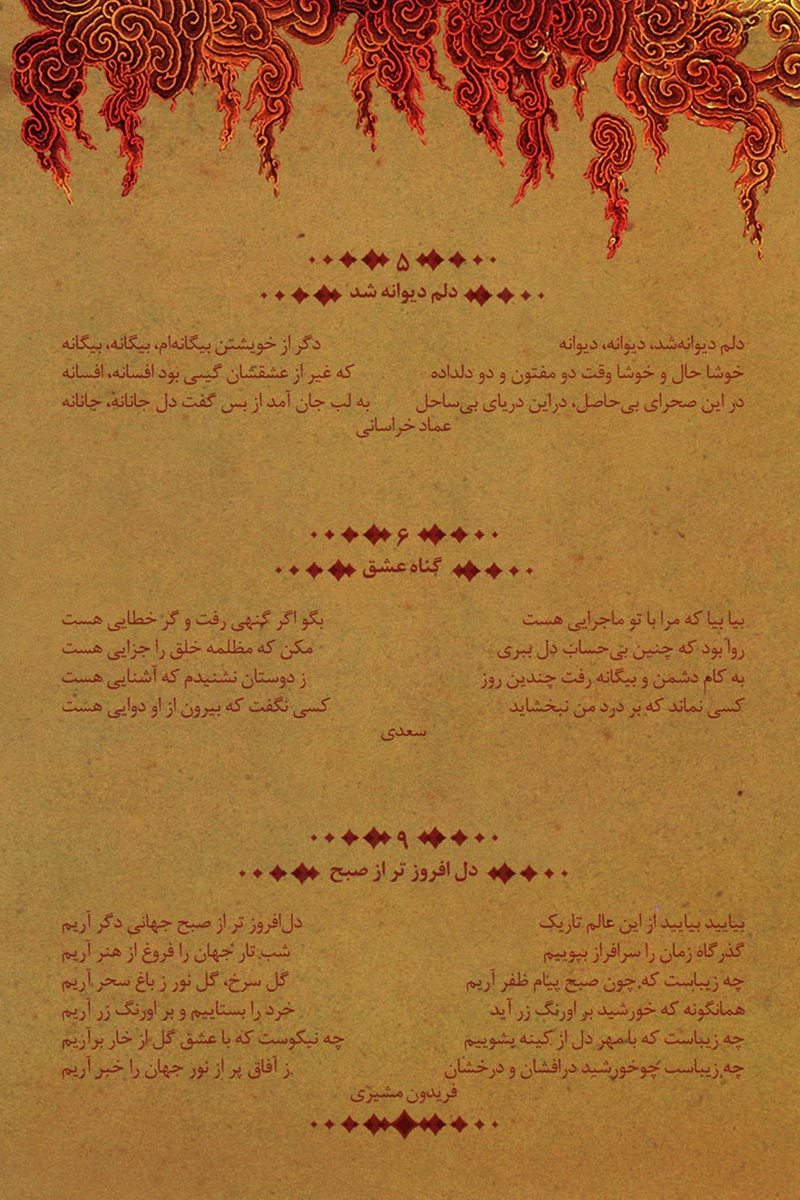 ۵
دلم دیوانه شد
دلم دیوانه‌شد، دیوانه، دیوانه دگر از خویشتن بیگانه‌ام، بیگانه، بیگانه
خوشا حال و خوشا وقت دو مفتون و دو دلداده که غیر از عشقشان گیتی بود افسانه، افسانه
در این صحرای بی‌حاصل، دراین دریای بی‌ساحل به لب جان آمد از بس گفت دل جانانه، جانانه
عماد خراسانی
۶
گناه عشق
بیا بیا که مرا با تو ماجرایی هست بگو اگر گنهی رفت و گر خطایی هست
روا بود که چنین بی‌حساب دل ببری مکن که مظلمه خلق را جزایی هست
به کام دشمن و بیگانه رفت چندین روز ز دوستان نشنیدم که آشنایی هست
کسی نماند که بر درد من نبخشاید کسی نگفت که بیرون از او دوایی هست
سعدی
۹
دل افروز تر از صبح
بیایید بیایید از این عالم تاریک دل‌افروز تر از صبح جهانی دگر آریم
گذرگاه زمان را سرافراز بپوییم شب تار جهان را فروغ از هنر آریم
چه زیباست که چون صبح پیام ظفر آریم گل سرخ، گل نور ز باغ سحر آریم
همانگونه که خورشید بر اورنگ زر آید خرد را بستاییم و بر اورنگ زر آریم
چه زیباست که با مهر دل از کینه بشوییم چه نیکوست که با عشق گل از خار برآریم
چه زیباست چوخورشید درافشان و درخشان ز آفاق پر از نور جهان را خبر آریم
فریدون مشیری